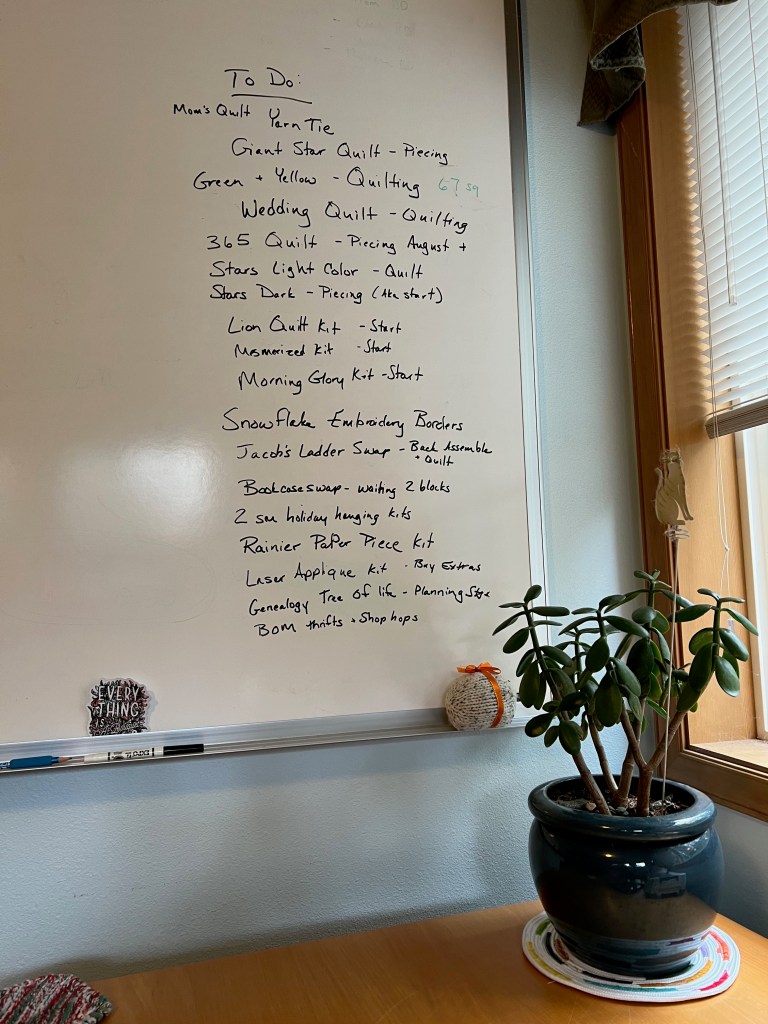 To Do:
Mom's Quilt Yarn Tie
Giant Star Quilt - Piecing
Green + Yellow - Quilting 67 sq
Wedding Quilt - Quilting
365 Quilt - Piecing August +
Stars Light Color - Quilt
Stars Dark - Piecing (Aka start)
Lion Quilt Kit - Start
Mesmerized Kit - Start
Morning Glory Kit - Start
Snowflake Embroidery Borders
Jacob's Ladder Swap - Back Assemble
+ Quilt
Bookcase swap - waiting 2 blocks
2 sm holiday hanging kits
Rainier Paper Piece Kit
Laser Applique Kit - Buy Extras
Genealogy Tree Of life - Planning Stage
BOM thrifts + Shop hops
EVERY
THING
IS
EXPO